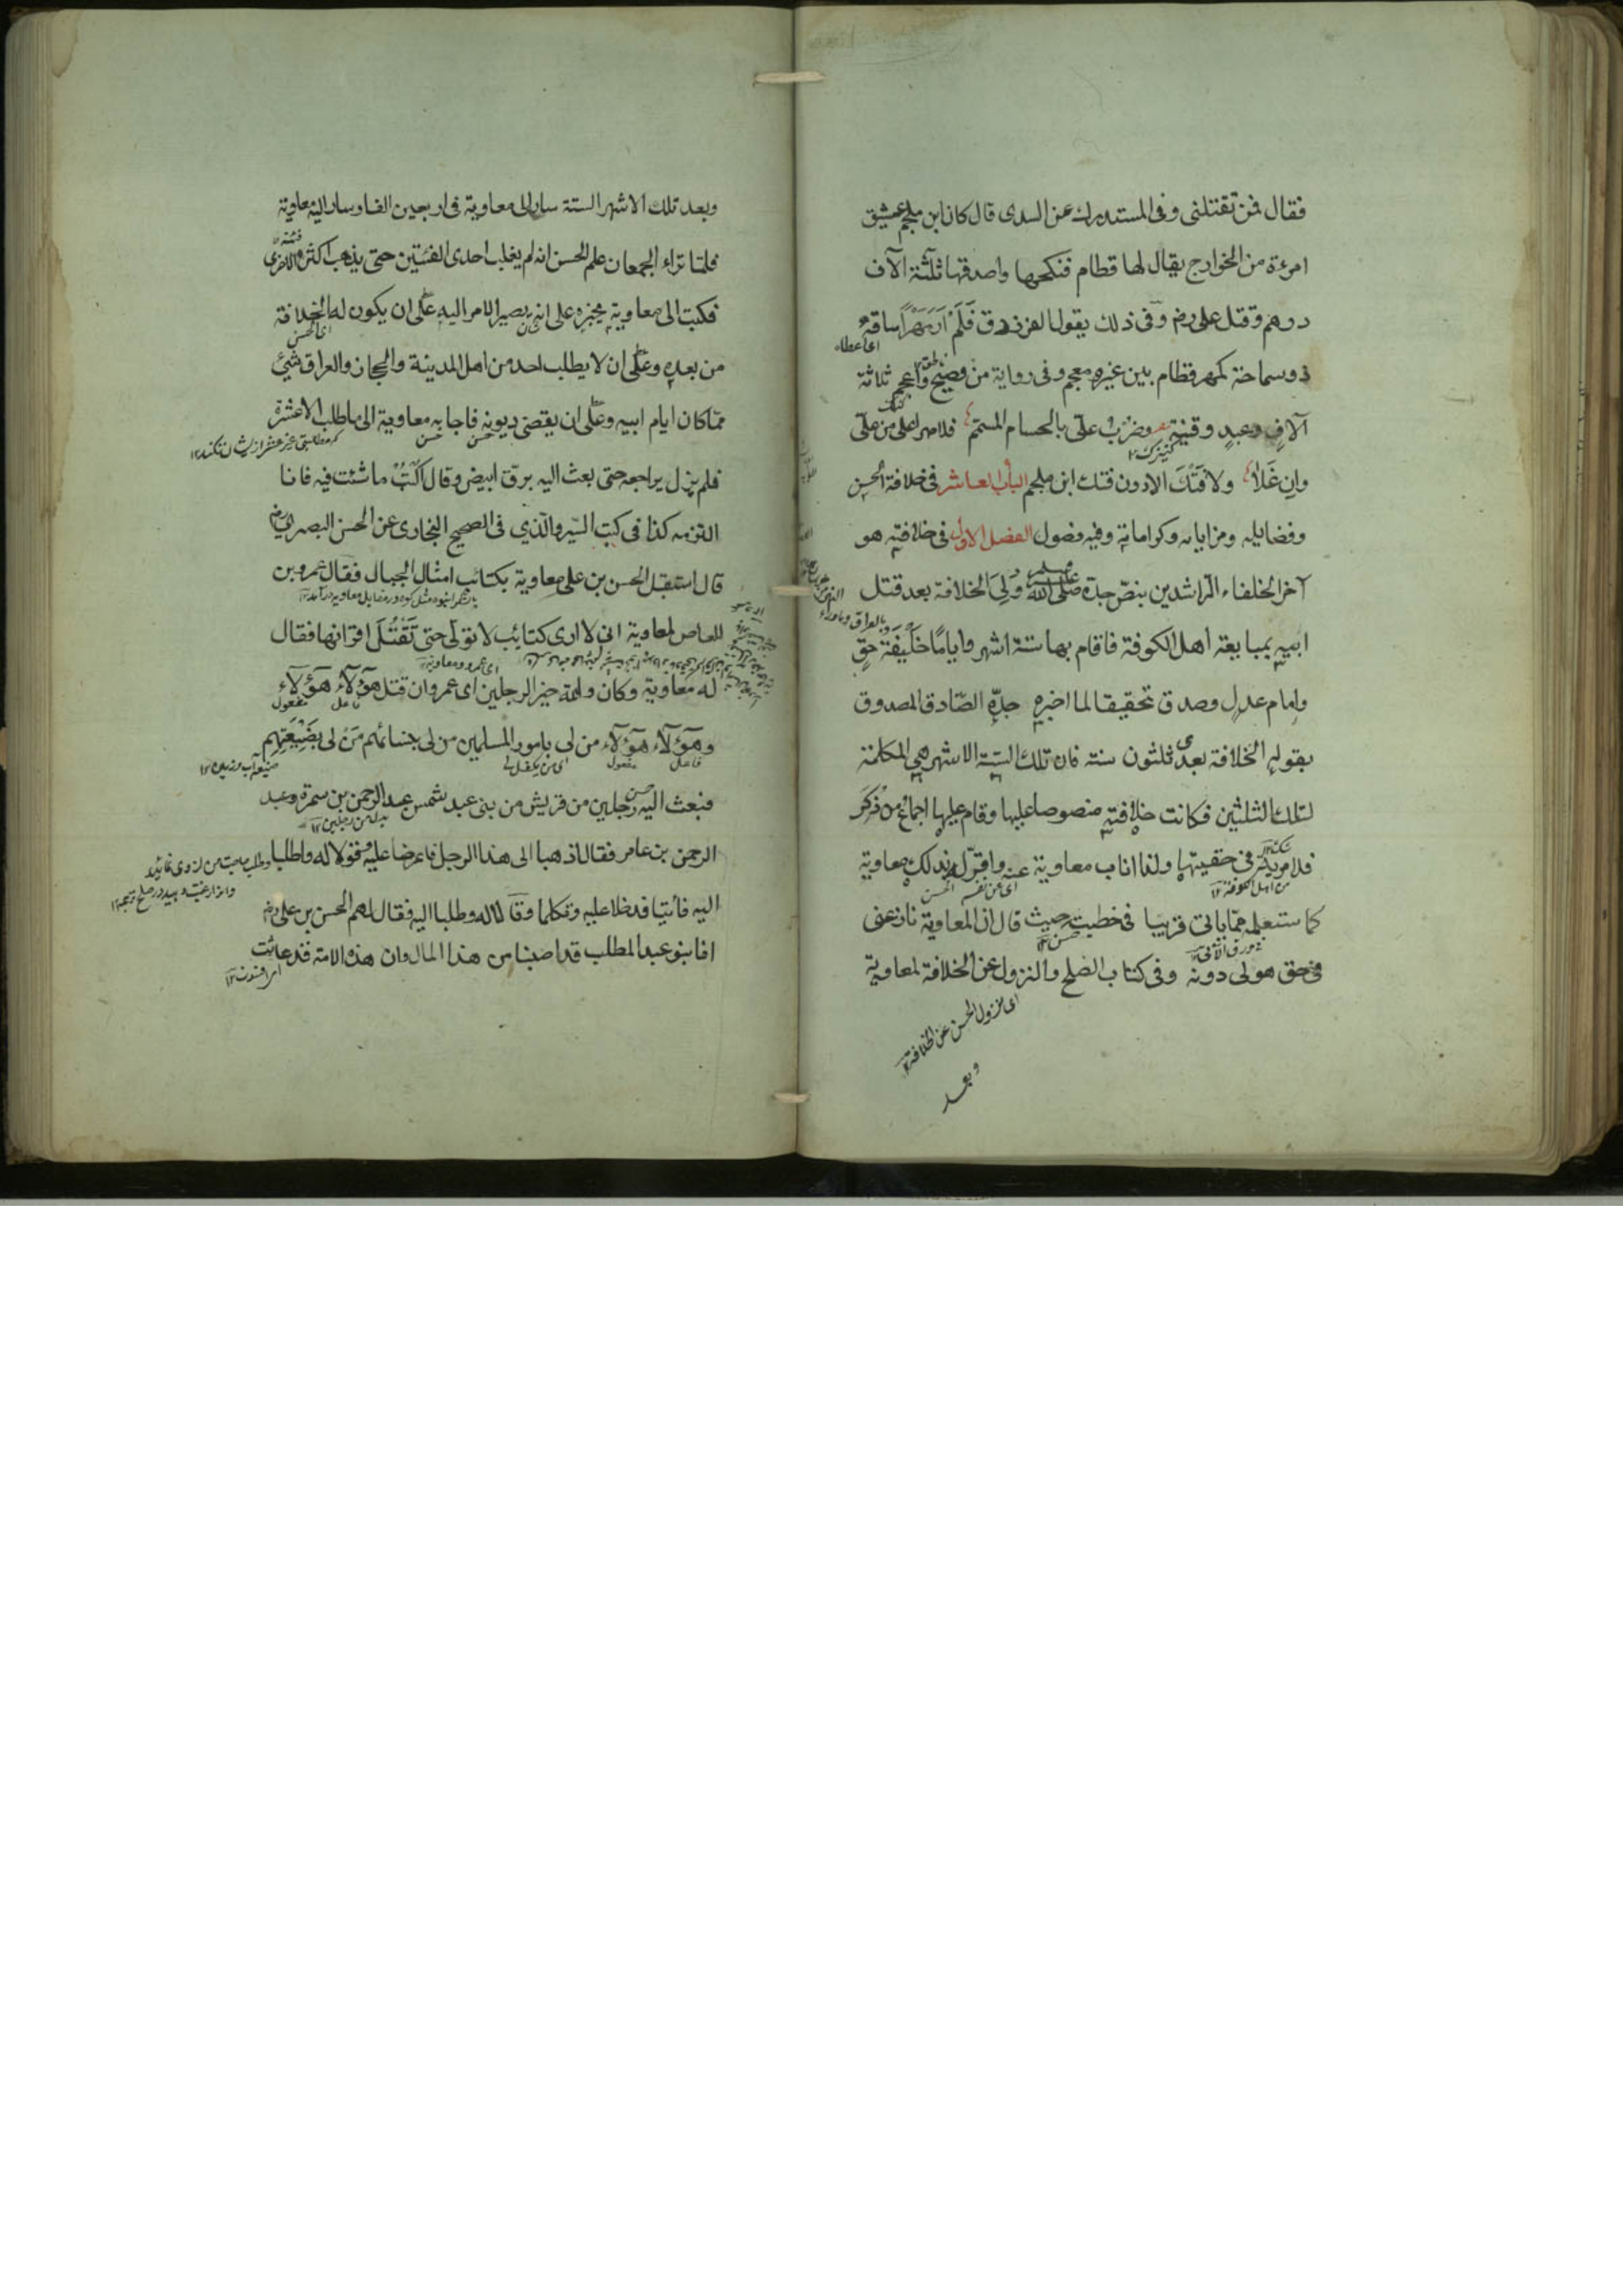 فقال فمن تقتلنى وفى المستدرك عن السدى قال كان ابن ملجم عشيق
امرءة من الخوارج يقال لها قطام فنكحها واصدقها ثلثة الآف
درهم وقتل على رض وفى ذلك يقول الفرزدق فَلَمْ اَرَ مَهْرًا ساقهٌ
اى اعطاه
ذو سماحة كمهر قطام بين غيره معجم وفى رواية من فصيح واعجم ثلاثة
آلافٍ وعبدٍ وقينةٍ وضربُ علىّ بالحسام المسمّم فلا مهر اعلى من علىّ
كنيزك ۱۲
وان غَلَا ولا فَتْكَ الا دون فتك ابن ملجم الباب العاشر فى خلافة الحسن
وفضايله ومزاياه وكراماته وفيه فصول الفصل الاول فى خلافته هو
آخر الخلفاء الراشدين بنصّ جدّه صلى الله عليه وسلم وَلِىَ الخلافة بعد قتل
ابيه بمبايعة اهل الكوفة فاقام بها ستة اشهر واياما خليفة حقٍ
وامام عدلٍ وصدق تحقيقا لما اخبره جدّه الصّادق المصدوق
بقوله الخلافة بعدى ثلثون سنة فان تلك السّتة الاشهر هى المكملة
لتلك الثلثين فكانت خلافته منصوصا عليها وقام عليها اجماع من ذُكِرَ
فلا مرية فى حقيتها ولذا اناب معاوية عنه واقرّ له بذلك معاوية
اى عن نفسه الحسن
كما ستعلمه ممّا ياتى قريبا فى خطبته حيث قال ان المعاوية نازعنى
در ورق الآتى ۱۲
فى حق هو لى دونه وفى كتاب الصلح والنزول عن الخلافة لمعاوية
اى نزول الحسن عن الخلافة ۱۲
وبعد
وبعد تلك الاشهر الستة سار الى معاوية فى اربعين الفا وسار اليه معاوية
فئة
فلمّا تراء الجمعان علم الحسن انه لم يغلب احدى الفئتين حتى يذهب اكثر الاخرى
فكتب الى معاوية يخبره على انه يصير الامر اليه على ان يكون له الخلافة
اى الحسن
من بعده وعلى ان لا يطلب احد من اهل المدينة والحجاز والعراق بشئ
ممّا كان ايام ابيه وعلى ان يقضى ديونه فاجابه معاوية الى ما طلب الا عشرة
حسن حسن
فلم يزل يراجعه حتى بعث اليه برقّ ابيض وقال اكْتُبْ ما شئت فيه فانا
التزمه كذا فى كتب السّير والّذي فى الصحيح البخارى عن الحسن البصرى رض
قال استقبل الحسن بن على معاوية بكتائب امثال الجبال فقال عمرو بن
العاص لمعاوية انى لا ارى كتايب لا تولّى حتى تَقْتُلَ اقرانها فقال
اى عمرو ومعاوية ۱۲
له معاوية وكان والله خير الرجلين اى عمرو ان قتل هؤلآء هؤلآء
فاعل مفعول
وهؤلآء هؤلآء من لى بامور المسلمين من لى بنسائهم مَنْ لى بضَيْعَتِهِم
فاعل مفعول اى من يكفل لى
فبعث اليه رجلين من قريش من بنى عبد شمس عبد الرحمن بن سمرة وعبد
بدل من رجلين ۱۲
الرحمن بن عامر فقال اذهبا الى هذا الرجل فاعرضا عليه وقولا له واطلبا
اليه فأتيا فدخلا عليه وتكلما وقالا له وطلبا اليه فقال لهم الحسن بن على رض
انا بنو عبد المطلب قد اصبنا من هذا المال وان هذه الامة قد عاثت